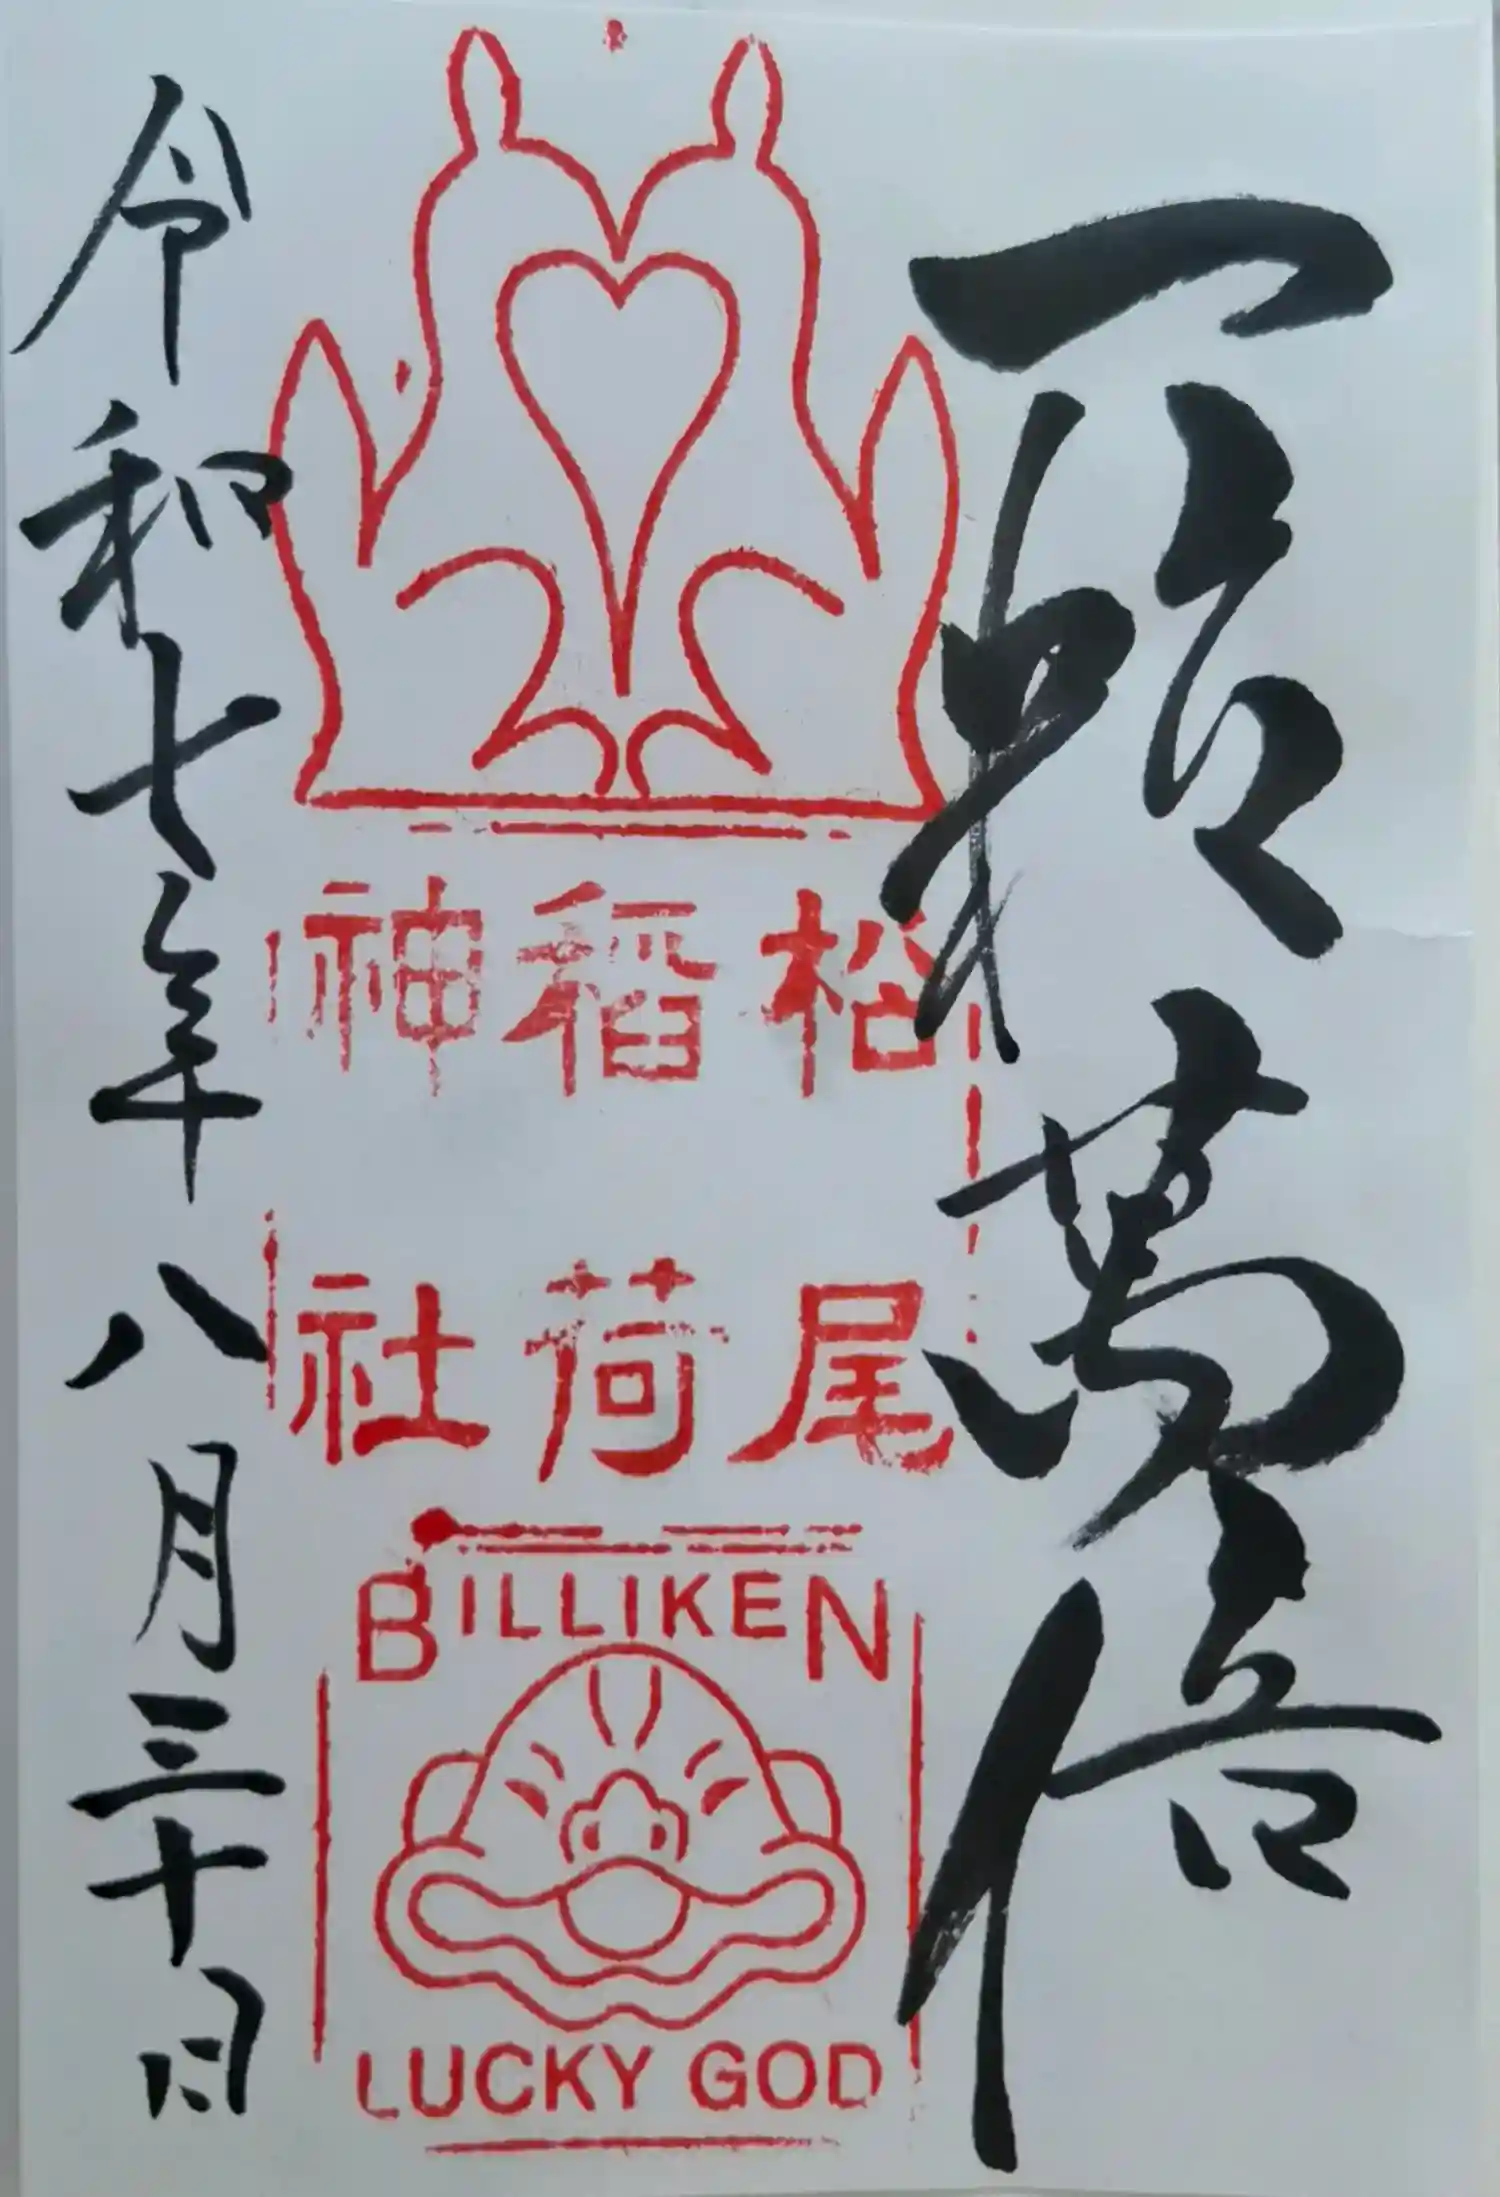 一粒萬倍
松尾
稲荷
神社
BILLIKEN
LUCKY GOD
令和七年八月三十日